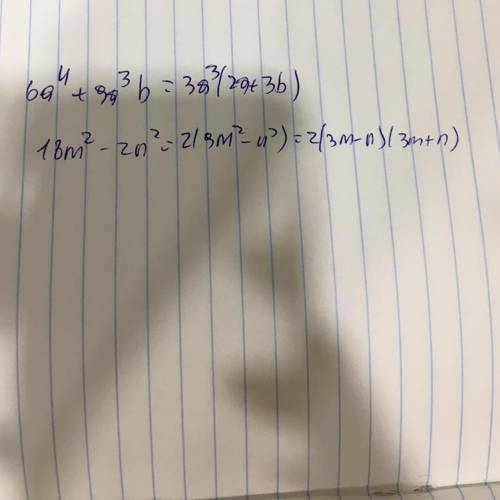 6a⁴ + 9a³b = 3a³(2a+3b)
18m² - 2n² = 2(9m² - n²) = 2(3m-n)(3m+n)